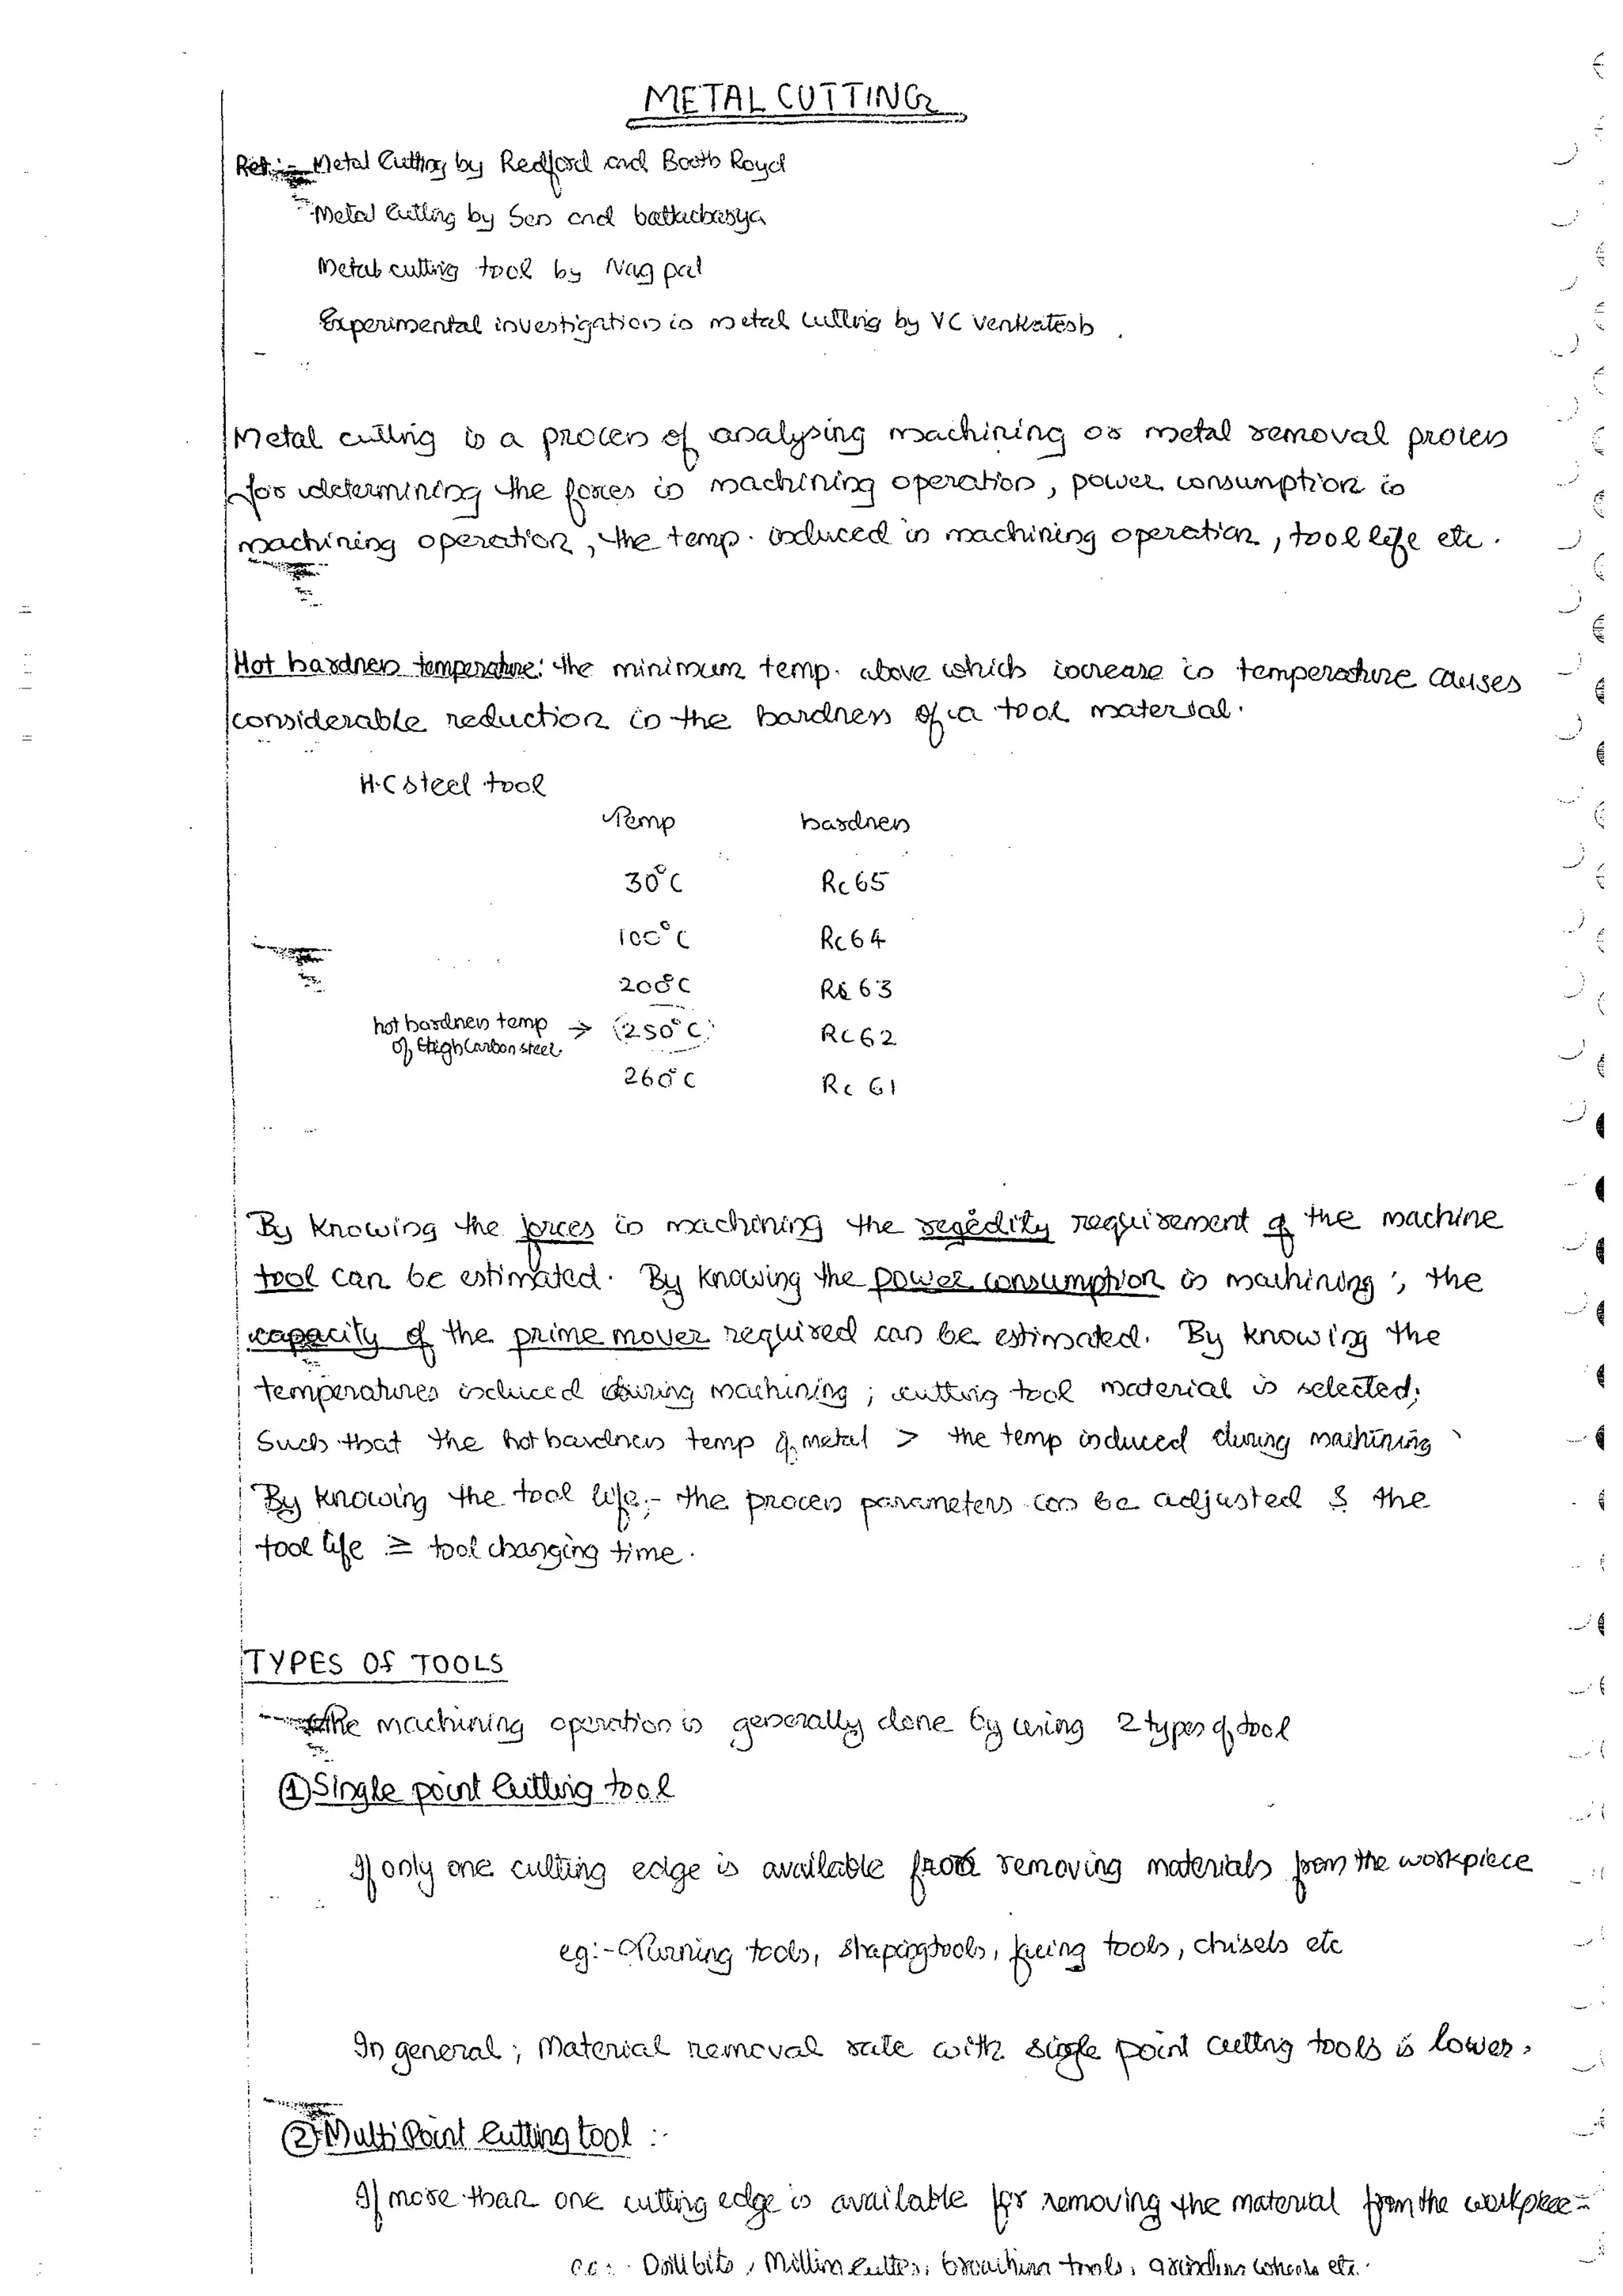 METAL CUTTING
Ref:- Metal Cutting by Redford and Booth Royd
Metal Cutting by Sen and battacharya
Metal cutting tool by Nag pal
Experimental investigation in metal cutting by VC Venkatesh.
Metal cutting is a process of analysing machining or metal removal process
for determining the forces in machining operation, power consumption in
machining operation, the temp. induced in machining operation, tool life etc.
Hot hardness temperature: the minimum temp. above which increase in temperature causes
considerable reduction in the hardness of a tool material.
H.C steel tool
Temp hardness
30°C Rc 65
100°C Rc 64
200°C Rc 63
hot hardness temp → 250°C Rc 62
of High Carbon steel
260°C Rc 61
By knowing the forces in machining the regedity requirement of the machine
tool can be estimated. By knowing the power consumption in machining; the
capacity of the prime mover required can be estimated. By knowing the
temperatures induced during machining; cutting tool material is selected;
Such that the hot hardness temp of metal > the temp induced during machining
By knowing the tool life;- the process parameters can be adjusted & the
tool life ≥ tool changing time.
TYPES Of TOOLS
The machining operation is generally done by using 2 types of tool
① Single point Cutting tool
If only one cutting edge is available for removing materials from the workpiece
eg:- Turning tools, shaping tools, facing tools, chisels etc
In general; Material removal rate with single point cutting tools is lower.
② Multi Point Cutting tool :-
If more than one cutting edge is available for removing the material from the workpiece
eg: Drill bits, Milling cutters, broaching tools, grinding wheels etc.